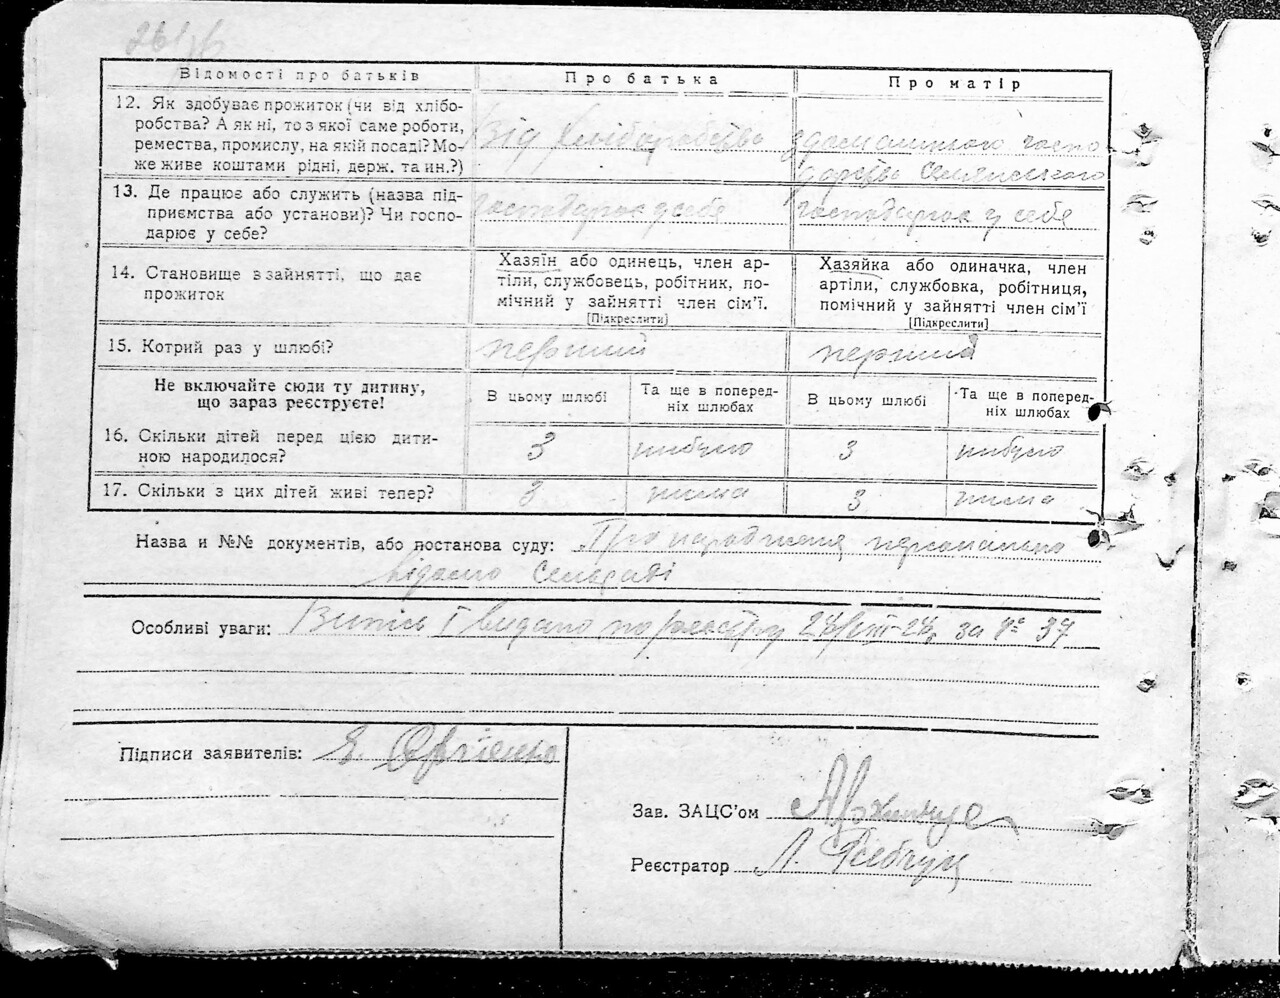 Відомості про батьків
Про батька
Про матір
12. Як здобуває прожиток (чи від хлібо-
робства? А як ні, то з якої саме роботи,
ремества, промислу, на якій посаді? Мо-
же живе коштами рідні, держ. та ин.?)
Від хліборобства
з домашнього госпо
дарства Селянського
13. Де працює або служить (назва під-
приємства або установи)? Чи госпо-
дарює у себе?
господарює у себе
господарює у себе
14. Становище в зайнятті, що дає
прожиток
Хазяїн або одинець, член ар-
тіли, службовець, робітник, по-
мічний у зайнятті член сім'ї.
[Підкреслити]
Хазяйка або одиначка, член
артіли, службовка, робітниця,
помічний у зайнятті член сім'ї
[Підкреслити]
15. Котрий раз у шлюбі?
перший
перший
Не включайте сюди ту дитину,
що зараз реєструєте!
В цьому шлюбі
Та ще в поперед-
ніх шлюбах
В цьому шлюбі
Та ще в поперед-
ніх шлюбах
16. Скільки дітей перед цією дити-
ною народилося?
3
небуло
3
небуло
17. Скільки з цих дітей живі тепер?
3
нима
3
нима
Назва и №№ документів, або постанова суду: Про народження персонально
відомо Сельраді
Особливі уваги: Витяг видано по реєстру за № 37
Підписи заявителів:
Зав. ЗАЦС'ом
Реєстратор Л.